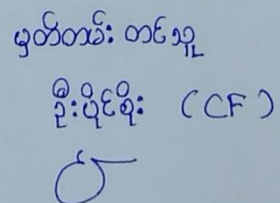 မှတ်တမ်း တင်သူ
ဦးပိုင်စိုး (CF)